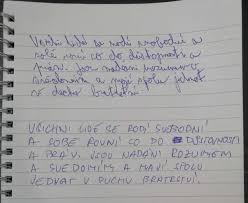 Všichni lidé se rodí svobodní a
sobě rovni co do důstojnosti a
práv. Jsou nadáni rozumem a
svědomím a mají spolu jednat
v duchu bratrství.
VŠICHNI LIDÉ SE RODÍ SVOBODNÍ
A SOBĚ ROVNI CO DO DŮSTOJNOSTI
A PRÁV. JSOU NADÁNI ROZUMEM
A SVĚDOMÍM A MAJÍ SPOLU
JEDNAT V DUCHU BRATRSTVÍ.